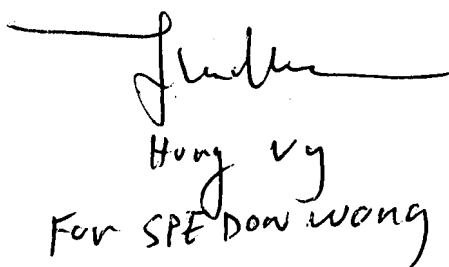 Hung Vy
For SPE DON Wong